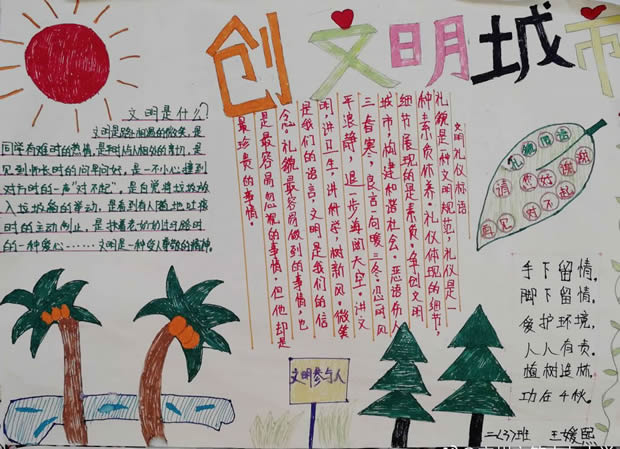 创文明城市
文明是什么?
文明是路上相遇的微笑,是
同学有难时的热情,是平时与人相处的真切,是
见到师长时的问早问好,是一不小心撞到
对方时的一声“对不起”,是自觉将垃圾放
入垃圾箱的举动,是看到有人随地吐痰
时的主动制止,是扶着老奶奶过马路时
的一种爱心……文明是一种受人尊敬的精神。
文明礼仪标语
礼貌是一种文明规范,礼仪是一
种素质修养。礼仪体现的细节,
细节展现的是素质。争创文明
城市,构建和谐社会。恶语伤人
三春寒,良言向暖三冬。忍一时风
平浪静,退一步海阔天空。讲文
明,讲卫生,讲科学,树新风。微笑
是我们的语言,文明是我们的信
念。礼貌最容易做到的事情,也
是最容易忽视的事情,但他却是
最珍贵的事情。
礼貌用语
请 您好 谢谢
再见 对不起
手下留情,
脚下留情,
爱护环境,
人人有责。
植树造林,
功在千秋。
文明参与人
二(3)班 王媛熙